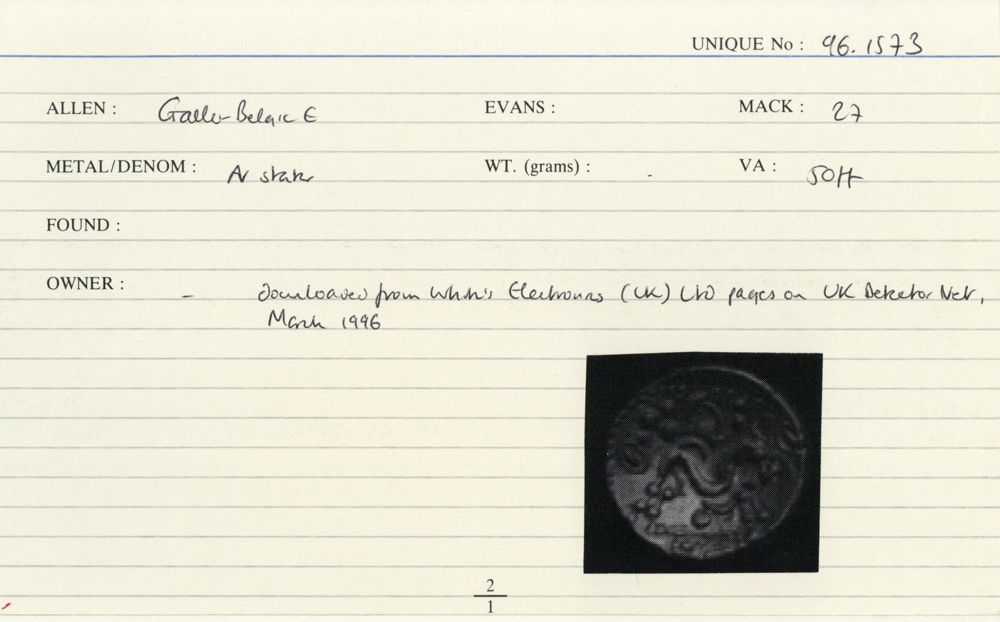 UNIQUE No : 96.1573
ALLEN : Gallo-Belgic E EVANS : MACK : 27
METAL/DENOM : AV stater WT. (grams) : - VA : 50++
FOUND :
OWNER : - downloaded from White's Electronics (UK) Ltd pages on UK Detector Net,
March 1996
2
1